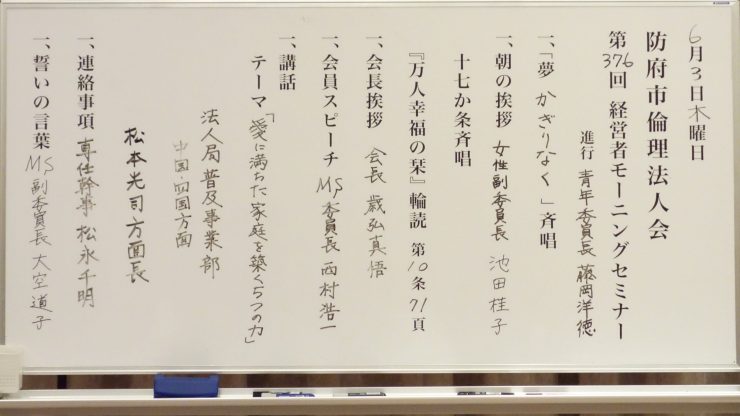 6月3日木曜日
防府市倫理法人会
第376回 経営者モーニングセミナー
進行 青年委員長 藤岡洋徳
一、「夢 かぎりなく」斉唱
一、朝の挨拶 女性副委員長 池田桂子
十七か条斉唱
『万人幸福の栞』輪読 第10条71頁
一、会長挨拶 会長 歳弘真悟
一、会員スピーチ MS委員長 西村浩一
一、講話
テーマ「愛に満ちた家庭を築く5つの力」
法人局普及事業部
中国・四国方面
松本光司方面長
一、連絡事項 専任幹事 松永千明
一、誓いの言葉 MS副委員長 大空道子